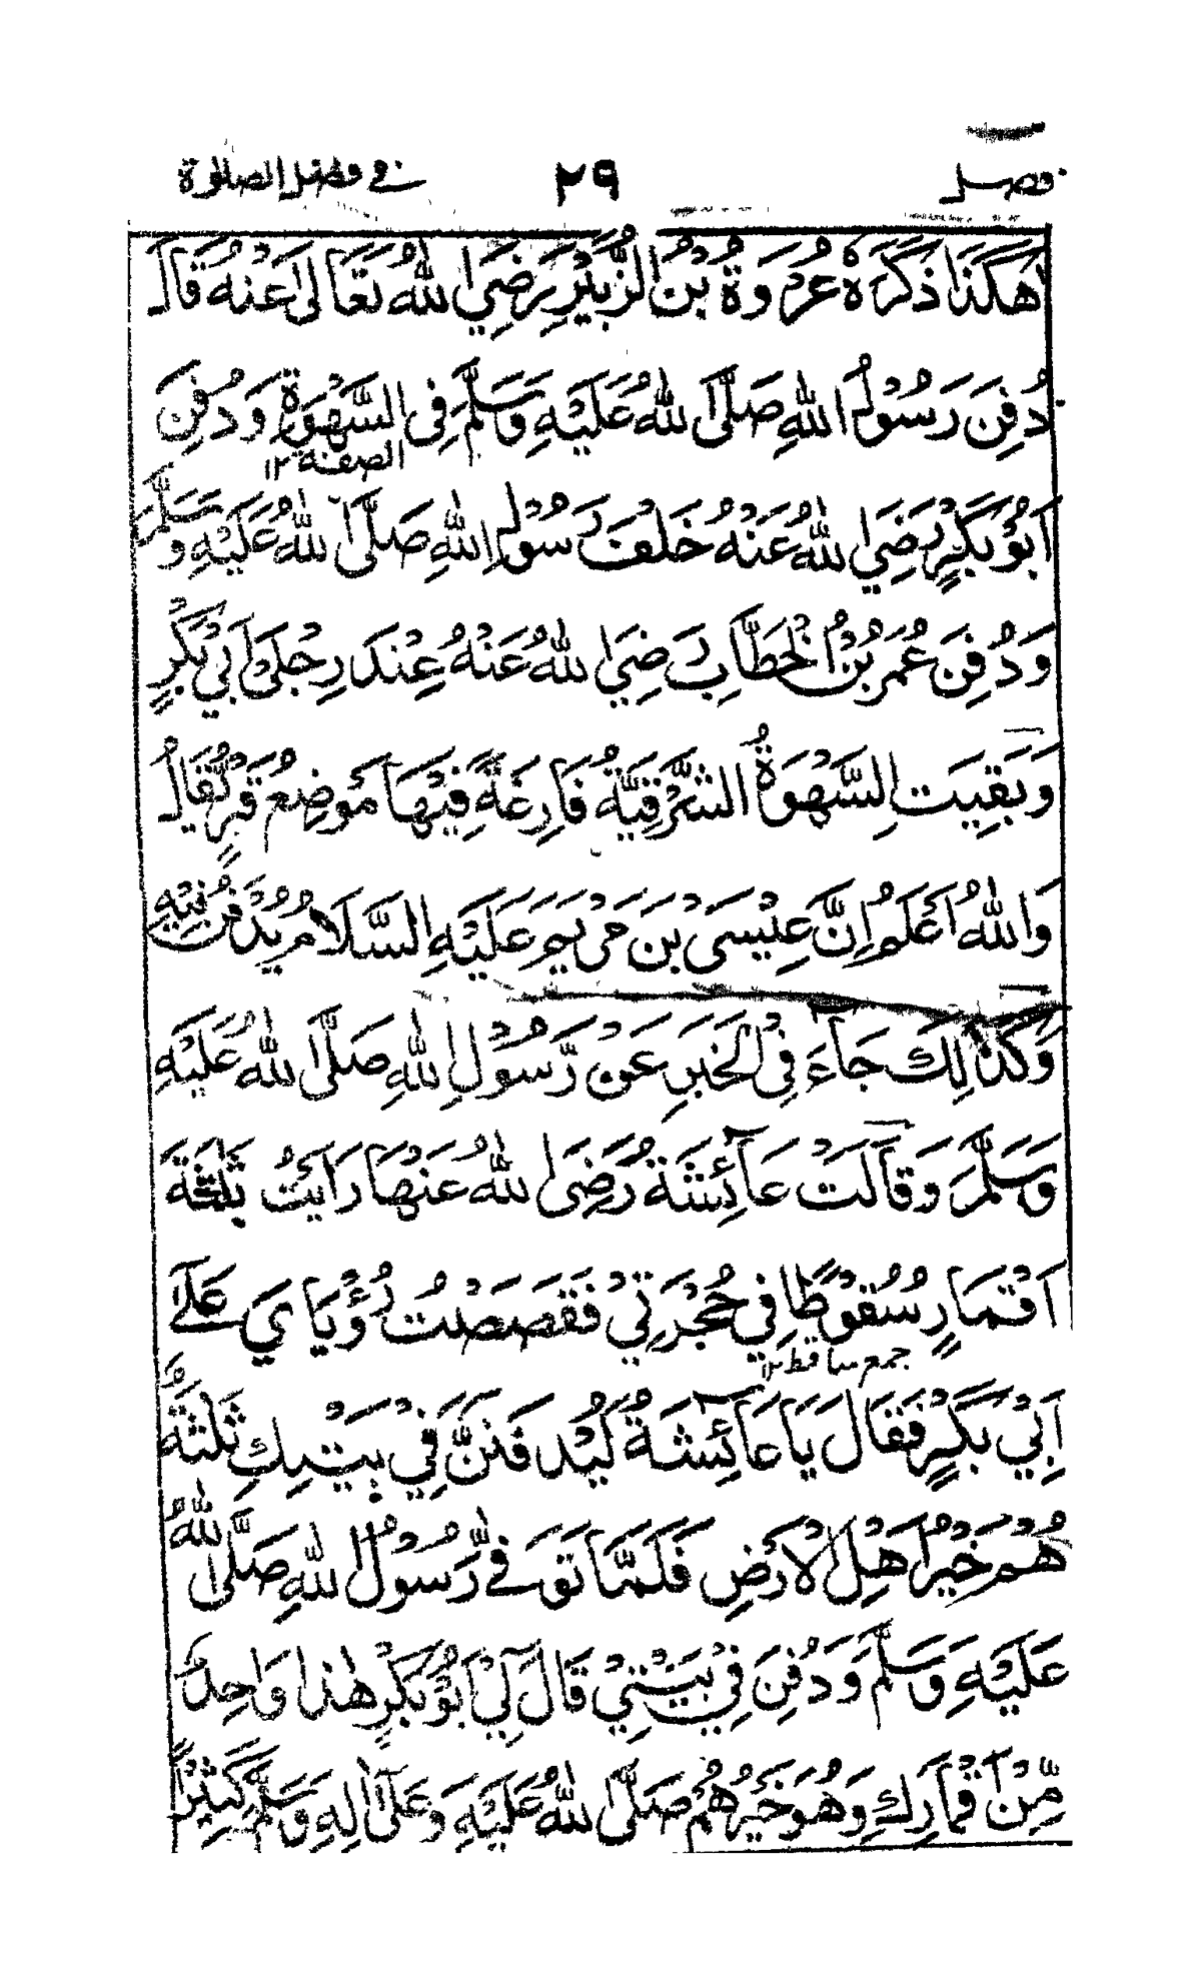 فصل ٢٩ في فضل الصلوة
هٰكَذَا ذَكَرَهٗ عُرْوَةُ بْنُ الزُّبَيْرِ رَضِيَ اللهُ تَعَالٰى عَنْهُ قَالَ
دُفِنَ رَسُوْلُ اللهِ صَلَّى اللهُ عَلَيْهِ وَسَلَّمَ فِى السَّهْوَةِ وَدُفِنَ
الصفة ١٢
اَبُوْ بَكْرٍ رَضِيَ اللهُ عَنْهُ خَلْفَ رَسُوْلِ اللهِ صَلَّى اللهُ عَلَيْهِ وَسَلَّمَ
وَدُفِنَ عُمَرُ بْنُ الْخَطَّابِ رَضِيَ اللهُ عَنْهُ عِنْدَ رِجْلَىْ اَبِيْ بَكْرٍ
وَبَقِيَتِ السَّهْوَةُ الشَّرْقِيَّةُ فَارِغَةً فِيْهَا مَوْضِعُ قَبْرٍ يُّقَالُ
وَاللهُ اَعْلَمُ اِنَّ عِيْسَى بْنَ مَرْيَمَ عَلَيْهِ السَّلَامُ يُدْفَنُ فِيْهِ
وَكَذٰلِكَ جَآءَ فِى الْخَبَرِ عَنْ رَّسُوْلِ اللهِ صَلَّى اللهُ عَلَيْهِ
وَسَلَّمَ وَقَالَتْ عَآئِشَةُ رَضِىَ اللهُ عَنْهَا رَاَيْتُ ثَلٰثَةَ
اَقْمَارٍ سُقُوْطًا فِيْ حُجْرَتِيْ فَقَصَصْتُ رُؤْيَايَ عَلٰى
جمع ساقط ١٢
اَبِيْ بَكْرٍ فَقَالَ يَا عَآئِشَةُ لَيُدْفَنَنَّ فِيْ بَيْتِكِ ثَلٰثَةٌ
هُمْ خَيْرُ اَهْلِ الْاَرْضِ فَلَمَّا تُوُفِّىَ رَسُوْلُ اللهِ صَلَّى اللهُ
عَلَيْهِ وَسَلَّمَ وَدُفِنَ فِيْ بَيْتِيْ قَالَ لِيْ اَبُوْ بَكْرٍ هٰذَا وَاحِدٌ
مِّنْ اَقْمَارِكِ وَهُوَ خَيْرُهُمْ صَلَّى اللهُ عَلَيْهِ وَعَلٰى اٰلِهٖ وَسَلَّمَ كَثِيْرًا